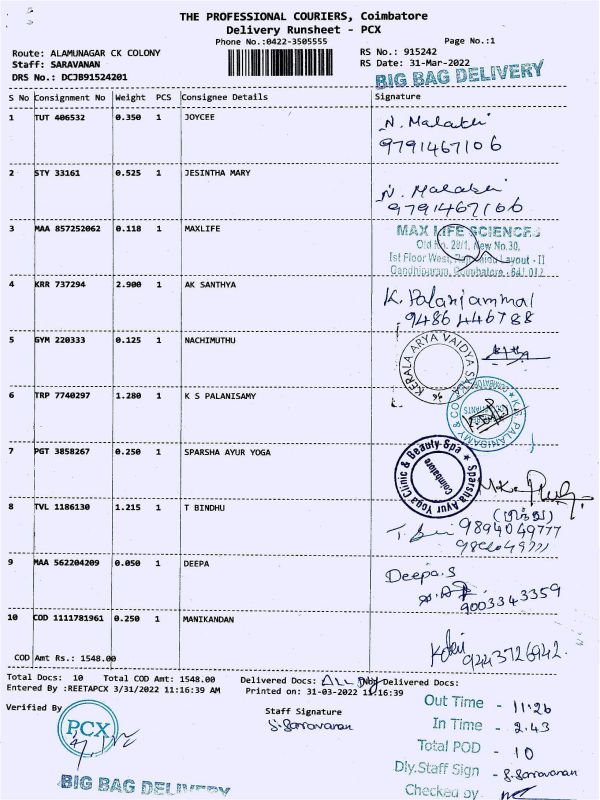 THE PROFESSIONAL COURIERS, Coimbatore
Delivery Runsheet - PCX
Phone No.:0422-3505555
Page No.:1
Route: ALAMUNAGAR CK COLONY
RS No.: 915242
Staff: SARAVANAN
RS Date: 31-Mar-2022
DRS No.: DCJB91524201
BIG BAG DELIVERY
S No Consignment No Weight PCS Consignee Details Signature
1 TUT 406532 0.350 1 JOYCEE
9791467106
2 STY 33161 0.525 1 JESINTHA MARY
9791467106
3 MAA 857252062 0.118 1 MAXLIFE
MAX LIFE SCIENCES
Old No. 28/1, New No.30,
Ist Floor West, Layout - II
Gandhipuram, Coimbatore - 641 012
4 KRR 737294 2.900 1 AK SANTHYA
K. Palaniammal
9486446788
5 GYM 220333 0.125 1 NACHIMUTHU
KERALA ARYA VAIDYA
6 TRP 7740297 1.280 1 K S PALANISAMY
K.S. PALANISAMY & CO
7 PGT 3858267 0.250 1 SPARSHA AYUR YOGA
Sparsha Ayur Yoga Clinic & Beauty Spa
Coimbatore
8 TVL 1186130 1.215 1 T BINDHU
(பிந்து)
9894049777
9 MAA 562204209 0.050 1 DEEPA
Deepa.S
9003343359
10 COD 1111781961 0.250 1 MANIKANDAN
9443726942
COD Amt Rs.: 1548.00
Total Docs: 10 Total COD Amt: 1548.00 Delivered Docs: Delivered Docs:
Entered By :REETAPCX 3/31/2022 11:16:39 AM Printed on: 31-03-2022 11:16:39
Verified By
Staff Signature
PCX
S. Sarravanan
Out Time - 11.26
In Time - 2.43
Total POD - 10
Dly.Staff Sign - S. Sarravanan
Checked by
BIG BAG DELIVERY